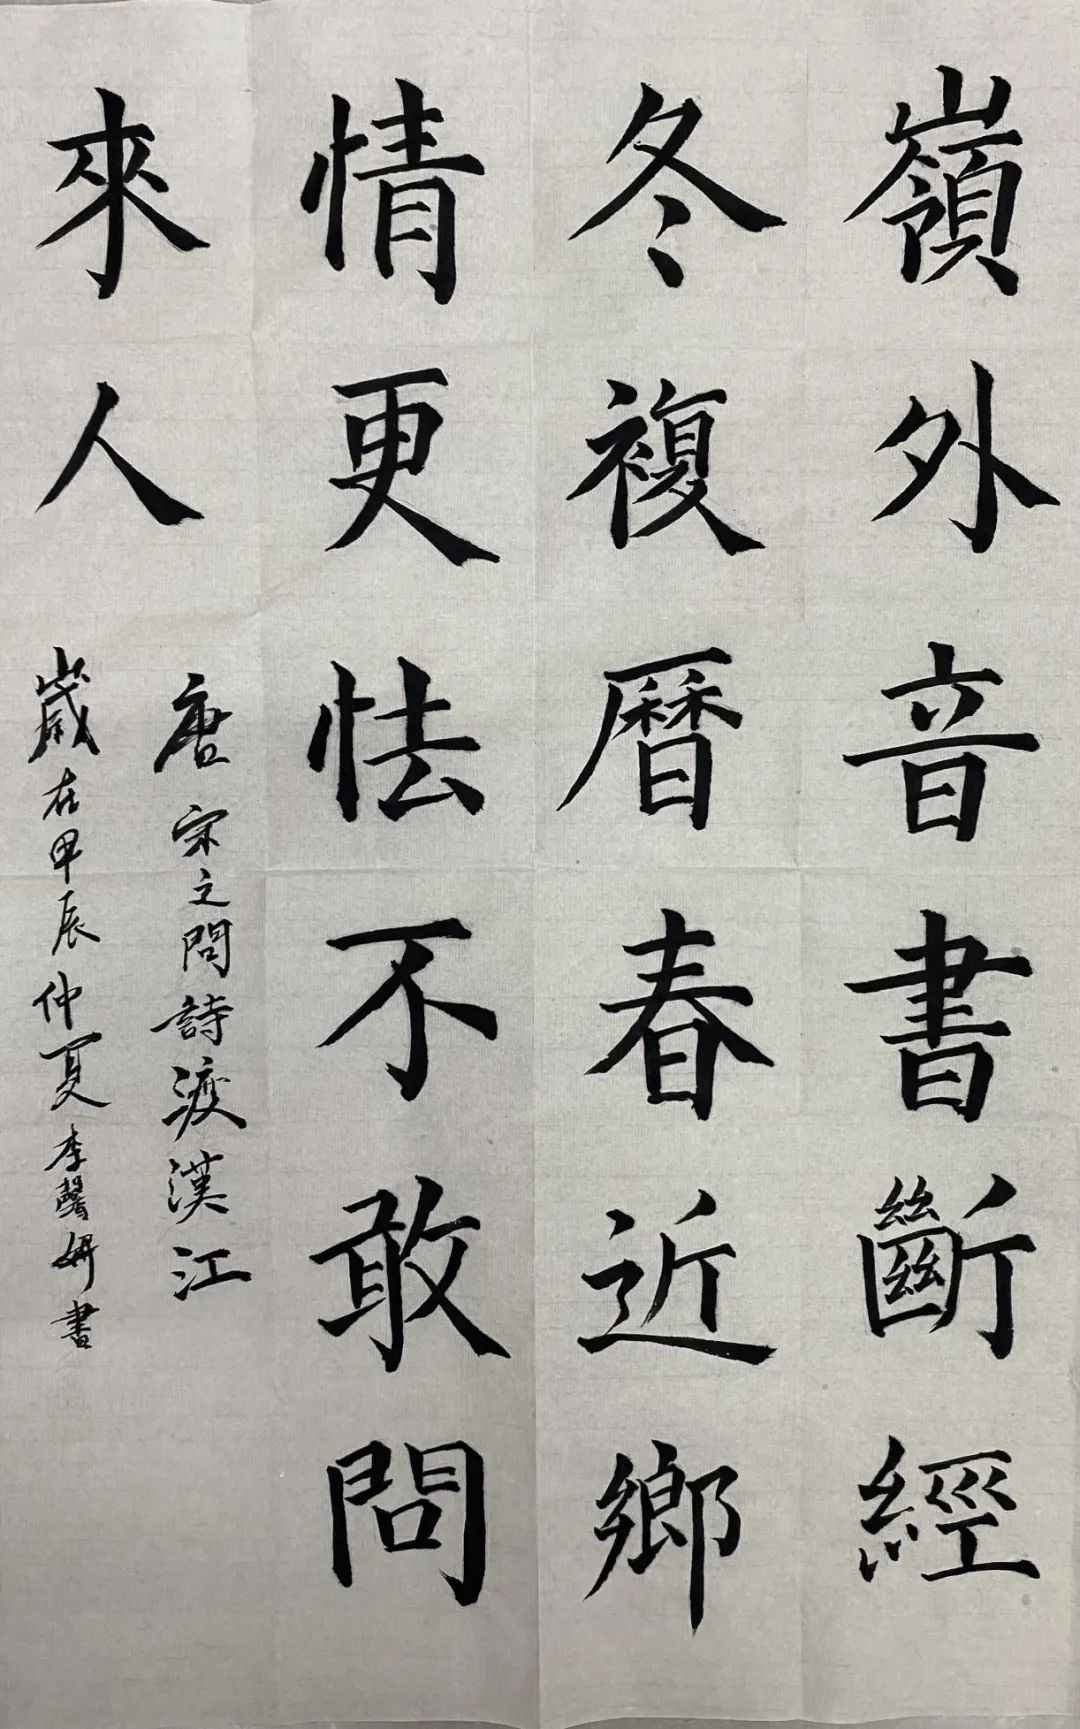 嶺外音書斷經
冬複曆春近鄉
情更怯不敢問
來人
唐宋之問詩渡漢江
歲在甲辰仲夏李馨妍書